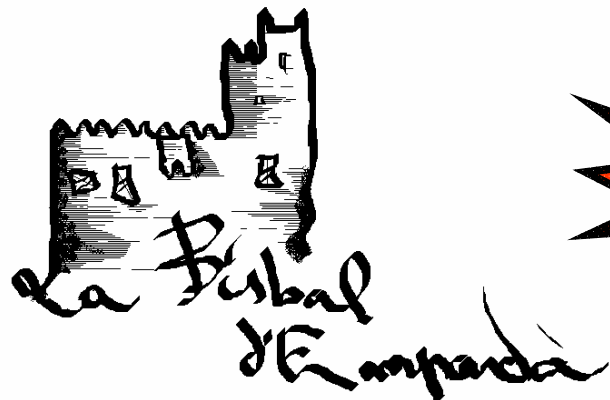 La Bisbal
d'Empordà